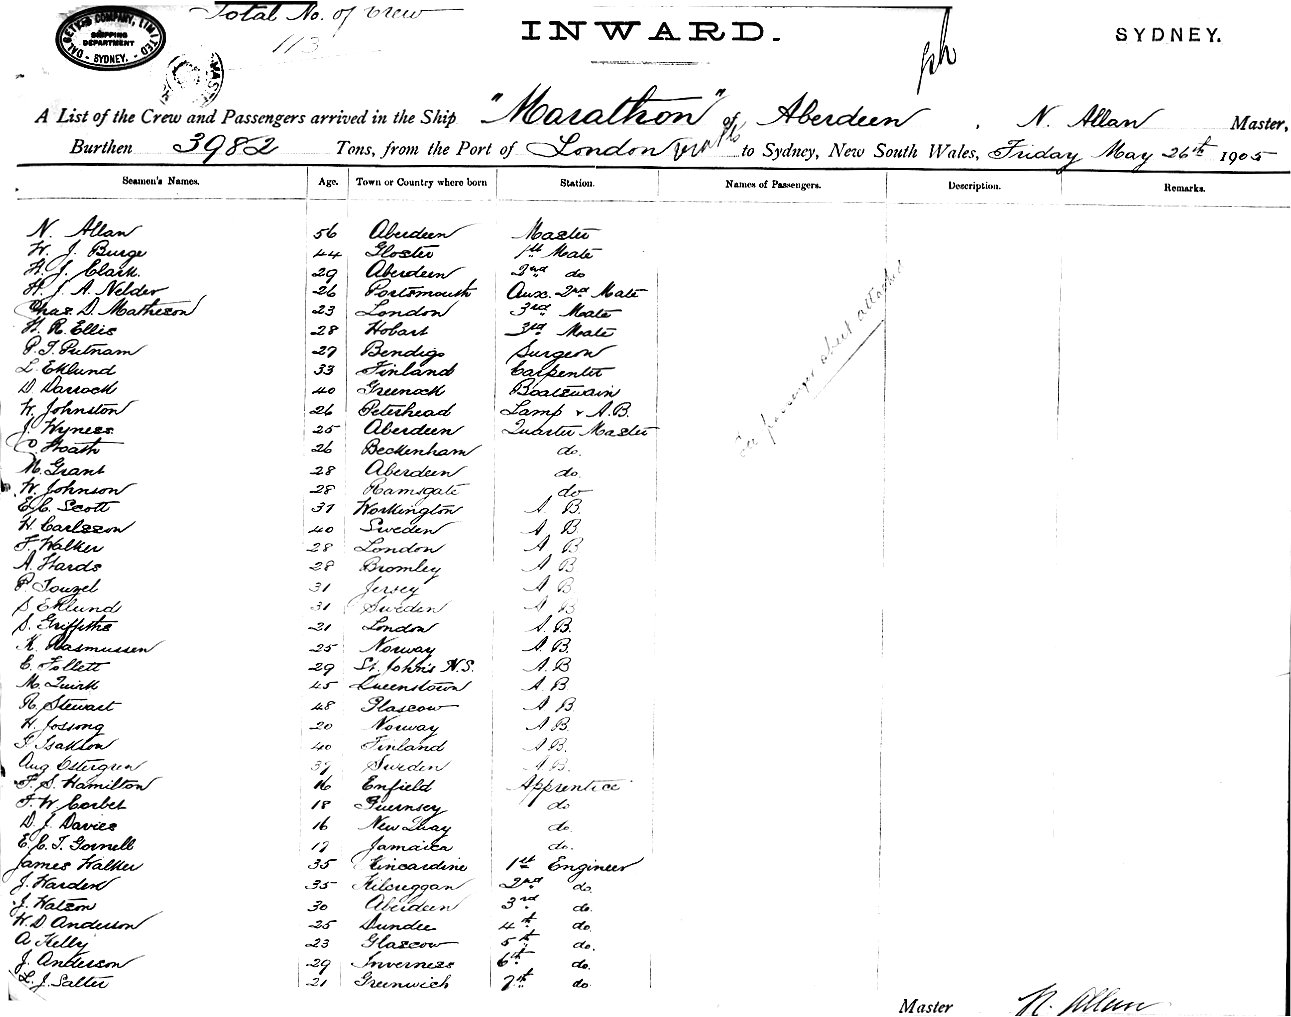 DALGETY & COMPANY, LIMITED
SHIPPING
DEPARTMENT
- SYDNEY. -
Total No. of crew
113
INWARD.
SYDNEY.
A List of the Crew and Passengers arrived in the Ship "Marathon" of Aberdeen, N. Allan Master,
Burthen 3982 Tons, from the Port of London to Sydney, New South Wales, Friday May 26th 1905
Seamen's Names. Age. Town or Country where born Station. Names of Passengers. Description. Remarks.
N. Allan 56 Aberdeen Master
W. J. Burge 44 Gloster 1st Mate
H. J. Clark. 29 Aberdeen 2nd do
H. J. A. Nelder 26 Portsmouth Aux. 2nd Mate
Chas. D. Matheson 23 London 3rd Mate
H. R. Ellis 28 Hobart 3rd Mate
P. T. Putnam 27 Bendigo Surgeon
L. Eklund 33 Finland Carpenter
D. Darroch 40 Greenock Boatswain
W. Johnston 26 Peterhead Lamp & A.B.
J. Wyness 25 Aberdeen Quarter Master
Hoath 26 Beckenham do.
M. Grant 28 Aberdeen do.
W. Johnson 28 Ramsgate do
E. C. Scott 37 Workington A. B.
H. Carlsson 40 Sweden A B.
F. Walker 28 London A B
A. Hards 28 Bromley A B
P. Touzel 31 Jersey A B
S Eklund 31 Sweden A B
S. Griffiths 21 London A. B.
K. Rasmussen 25 Norway A B.
E. Follett 29 St. John's N.S. A. B
M. Quirk 45 Queenstown A B
R. Stewart 48 Glascow A B
H. Jossong 20 Norway A B.
Isakson 40 Finland A B.
Aug Ostergren 37 Sweden A. B.
F. S. Hamilton 16 Enfield Apprentice
F. W. Corbet 18 Guernsey do
D. J. Davies 16 New Quay do.
E. C. T. Gornell 17 Jamaica do.
James Walker 35 Kincardine 1st Engineer
J. Harden 35 2nd do.
J. Watson 30 Aberdeen 3rd do.
W. D Anderson 25 Dundee 4th do.
A Kelly 23 Glascow 5th do.
J. Anderson 29 Inverness 6th do.
L. J. Salter 21 Greenwich 7th do.
See passenger sheet attached
Master N. Allan